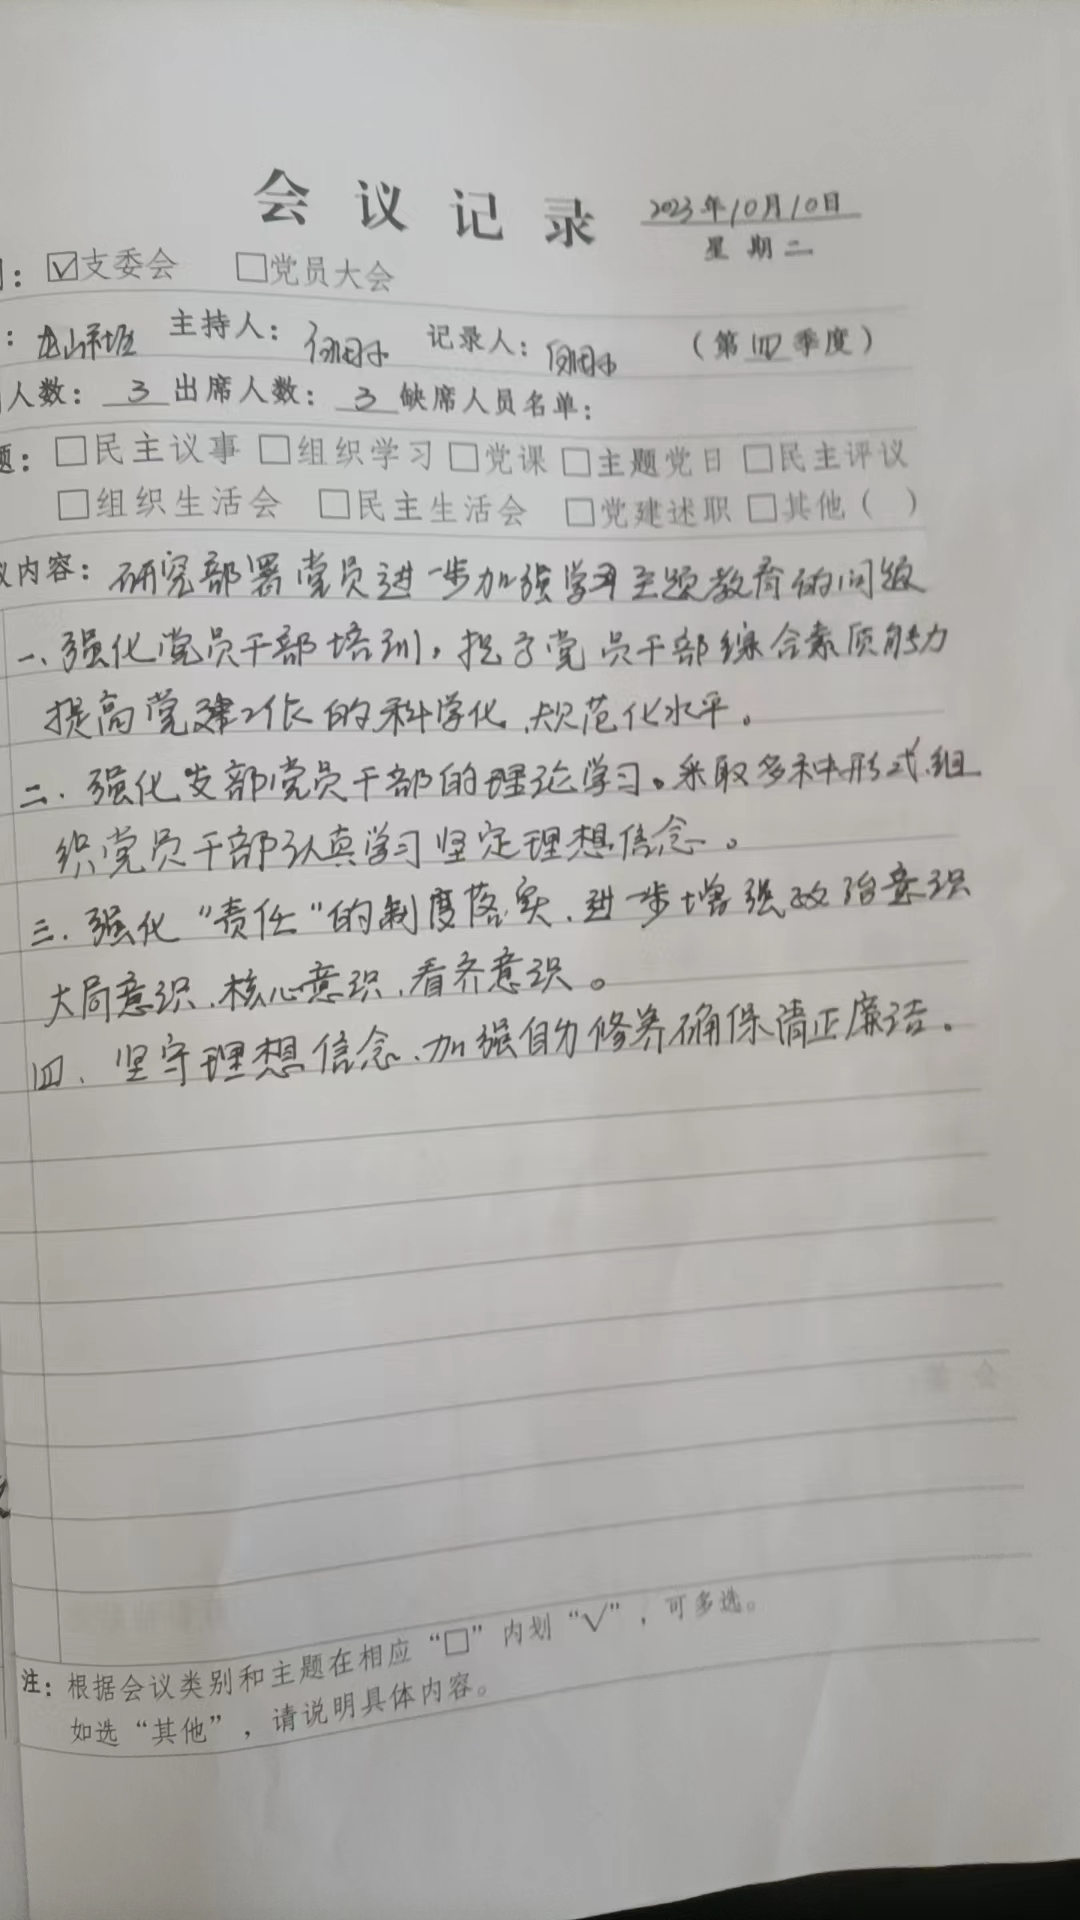 会议记录 2023年10月10日
星期二
：☑支委会 □党员大会
： 主持人： 记录人： （第四季度）
人数：3 出席人数：3 缺席人员名单：
题：□民主议事 □组织学习 □党课 □主题党日 □民主评议
□组织生活会 □民主生活会 □党建述职 □其他（ ）
议内容：研究部署党员进一步加强学习主题教育的问题
一、强化党员干部培训。提了党员干部综合素质能力
提高党建工作的科学化、规范化水平。
二、强化支部党员干部的理论学习。采取多种形式组
织党员干部认真学习坚定理想信念。
三、强化“责任”的制度落实、进一步增强政治意识
大局意识、核心意识、看齐意识。
四、坚守理想信念、加强自力修养确保清正廉洁。
注：根据会议类别和主题在相应“□”内划“√”，可多选。
如选“其他”，请说明具体内容。